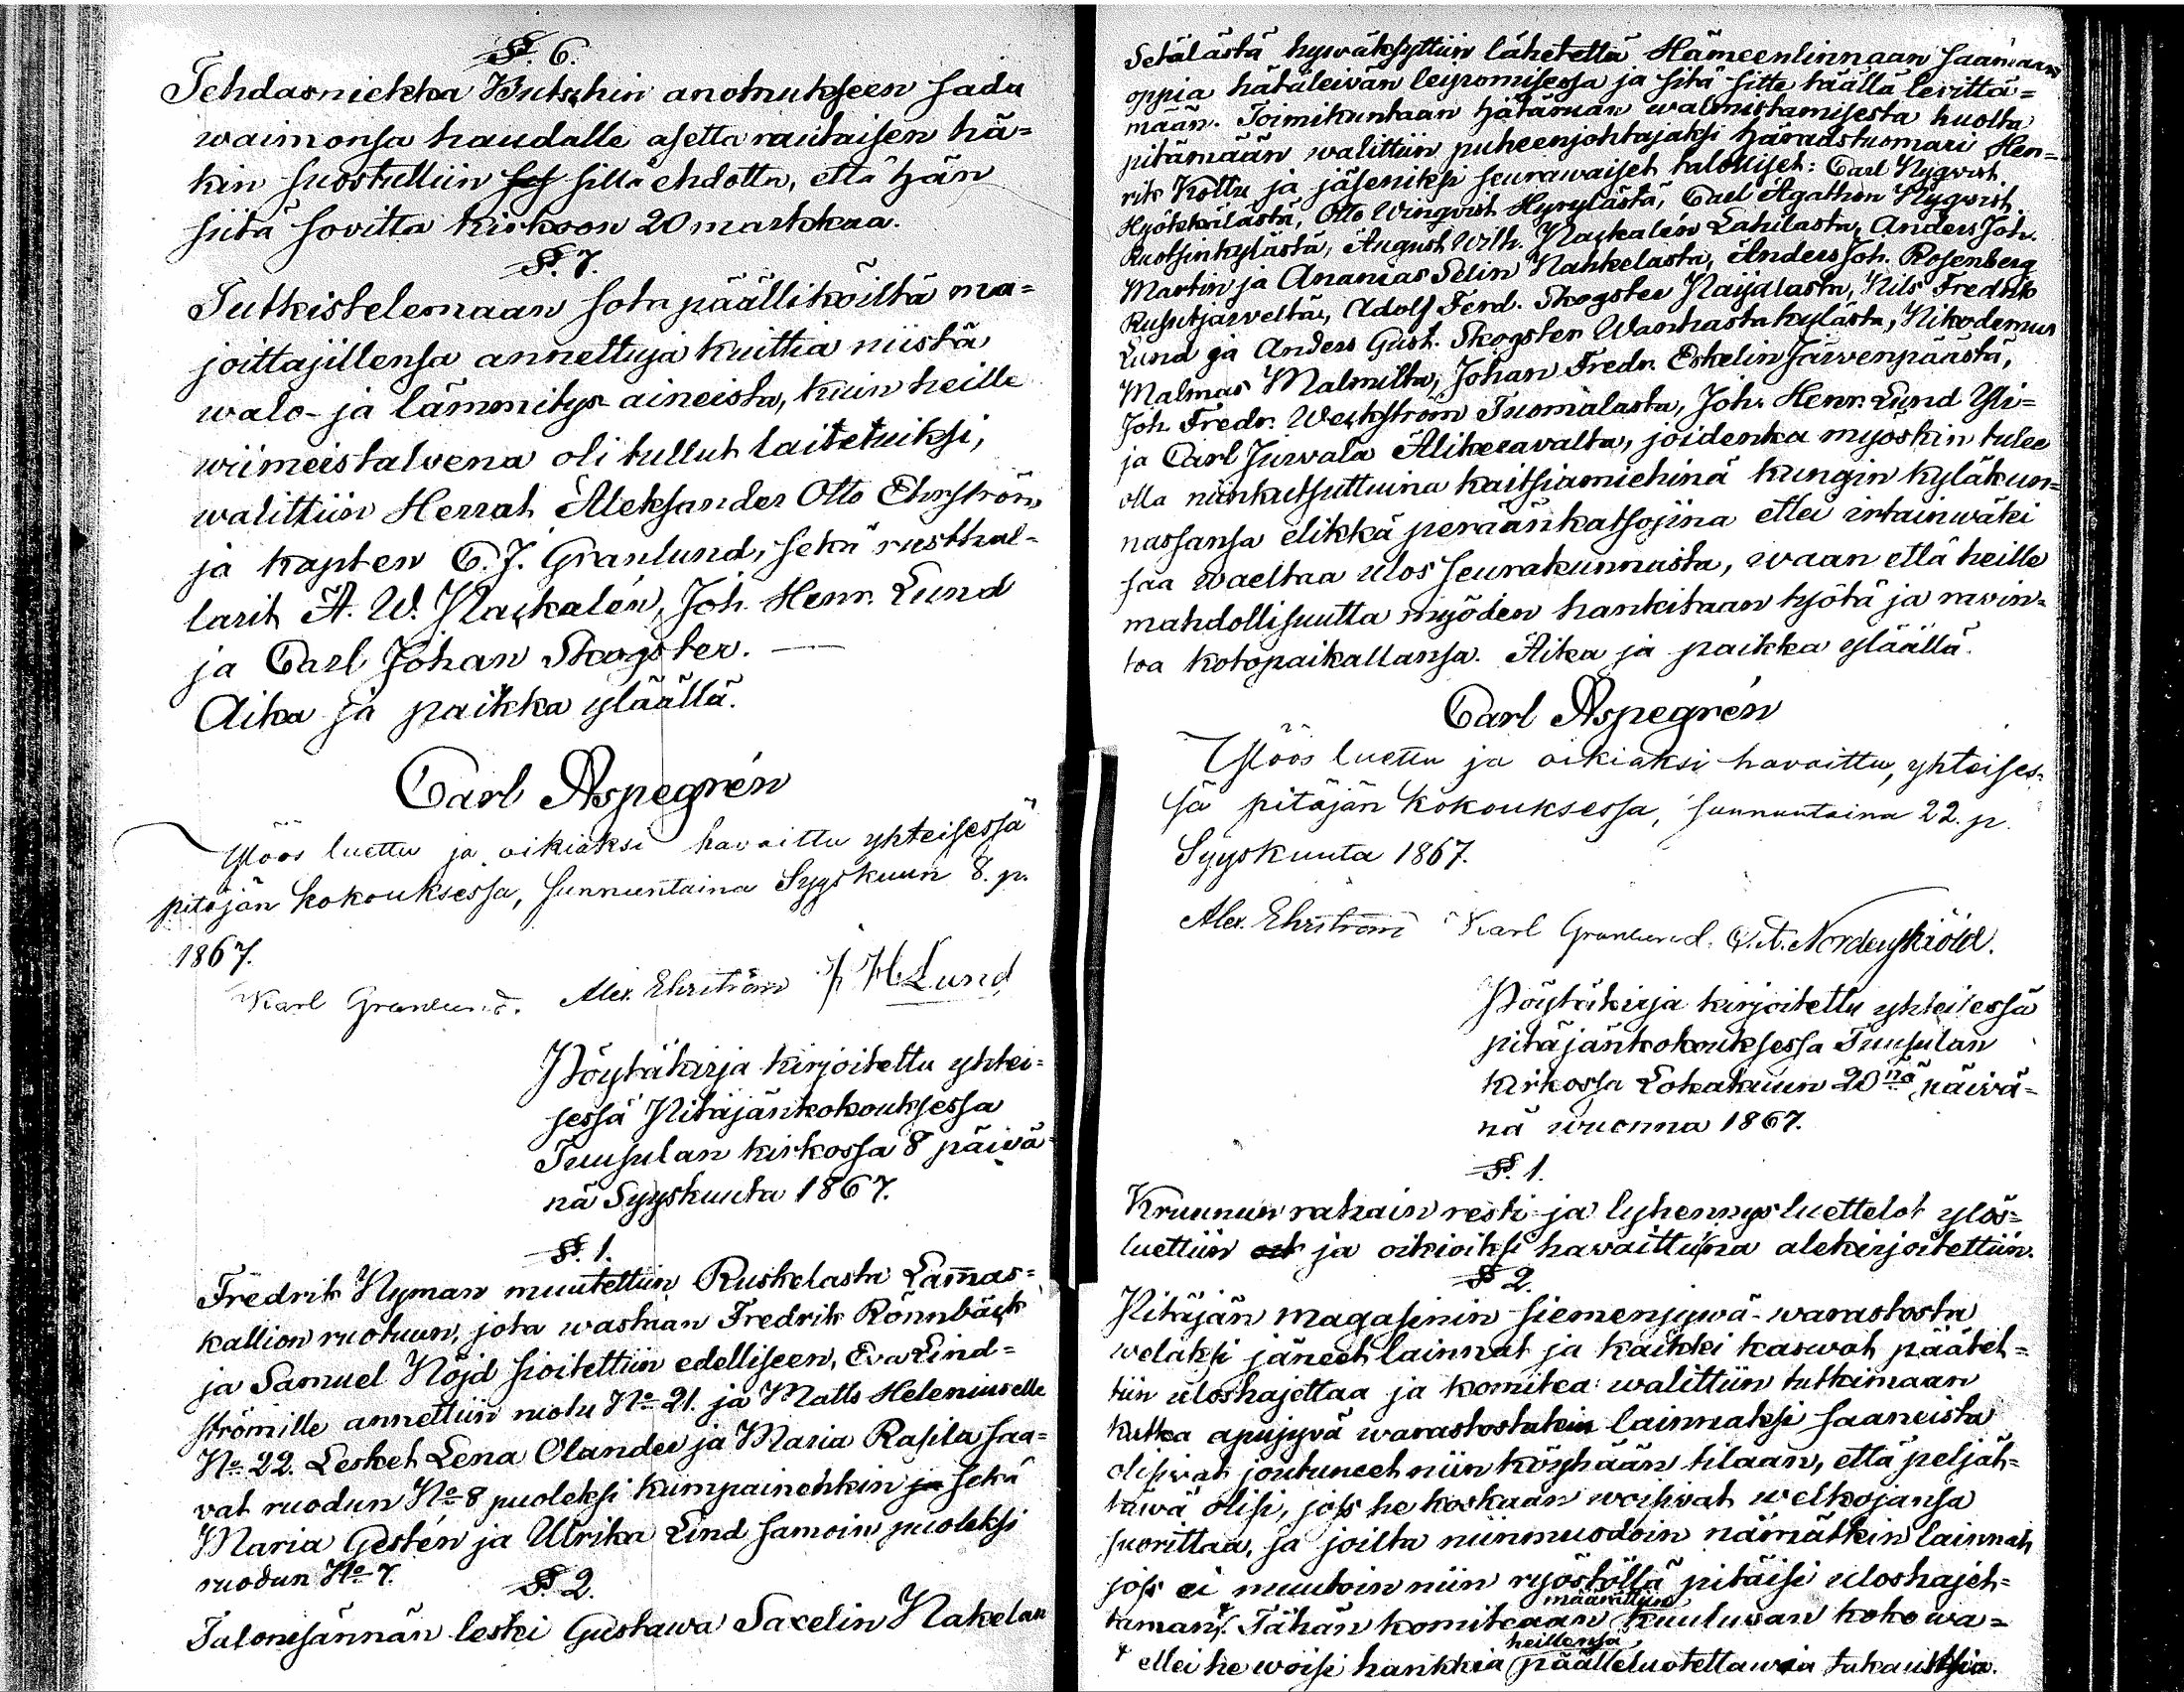 §. 6.
Tehdasniekka Butschin anomukseen saada
waimonsa haudalle asetta rautaisen hä=
kin suostuttiin sillä ehdolla, että hän
siitä sovitta kirkoon 20 markkaa.
§. 7.
Tutkistelemaan sota päälliköiltä ma=
joittajillensa annettuja kuittia niistä
walo- ja lämmitys-aineista, kuin heille
wiimeistalvena oli tullut laitetuiksi,
walittiin Herrat Aleksander Otto Ehrström
ja kapten C. J. Granlund, sekä rusthol=
larit A. W. Naskalén, Joh. Henr. Lund
ja Carl Johan Skogster.
Aika ja paikka yläällä.
Carl Aspegrén
Ylöös luettu ja oikiaksi havaittu yhteisessä
pitäjän kokouksessa, sunnuntaina Syyskuun 8. p.
1867.
Karl Granlund. Alex. Ehrström J H Lund
Pöytäkirja kirjoitettu yhtei=
sessä Pitäjänkokouksessa
Tuusulan kirkossa 8 päivä=
nä Syyskuuta 1867.
§. 1.
Fredrik Nyman muutettiin Ruskelasta Lam̄as=
kallion ruotuun, jota wastaan Fredrik Rönnbäck
ja Samuel Nöjd sioitettiin edelliseen, Eva Lind=
strömille annettiin ruotu No 21. ja Matts Heleniuselle
No 22. Lesket Lena Olander ja Maria Rasila saa=
vat ruodun No 8 puoleksi kumpainenkin ja sekä
Maria Gestén ja Ulrika Lind samoin puoleksi
ruodun No 7.
§. 2.
Talonisännän leski Gustawa Saxelin Nakelan
Setälästä hywäksyttiin lähetettä Hämeenlinnaan saamaan
oppia hätäleivän leipomisessa ja sitä sitte täällä levittä=
mään. Toimikuntaan hätärnän walmistamisesta huolta
pitämään walittiin puheenjohtajaksi häradstuomari Hen=
rik Kottu ja jäseniksi seurawaiset talolliset: Carl Nyqvist
Hyökkälästä, Otto Winqvist Hyrylästä, Carl Agathon Nyqvist
Ruotsinkylästä, August Wilh. Naskalén Lahelasta, Anders Joh.
Martin ja Ananias Selin Nahkelasta, Anders Joh. Rosenberg
Rusutjärveltä, Adolf Ferd. Skogster Paijalasta, Nils Fredrik
Lund ja Anders Gust. Skogster Wanhastakylästä, Nikodemus
Malmas Malmilta, Johan Fredr. Eskelin Järvenpäästä,
Joh. Fredr. Weckström Tuomalasta, Joh. Henr. Lund Yli=
ja Carl Juvala Alikeravalta, joidenka myöskin tulee
olla niinkutsuttuina kaitsiamiehinä kungin kyläkun=
nassansa elikkä peräänkatsojina ettei irtainwäki
saa waeltaa ulos seurakunnasta, waan että heille
mahdollisuutta myöden hankitaan työtä ja ravin=
toa kotopaikallansa. Aika ja paikka yläällä.
Carl Aspegrén
Ylöös luettu ja oikiaksi havaittu, yhteises=
sä pitäjän kokouksessa, sunnuntaina 22. p.
Syyskuuta 1867.
Alex. Ehrström Karl Granlund. Nordenskiöld.
Pöytäkirja kirjoitettu yhteisessä
pitäjänkokouksessa Tuusulan
kirkossa Lokakuun 20nä päivä=
nä wuonna 1867.
§. 1.
Kruunun rahain resti- ja lyhennys luettelot ylös=
luettiin ja oikioiksi havaittuina alekirjoitettiin.
§ 2.
Pitäjän magasinin siemenjywä-warastosta
welaksi jäneet lainnat ja kaikki kasvot päätet=
tiin uloshajettaa ja komitea walittiin tutkimaan
kutka apujyvä warastostakin lainnaksi saaneista
olisivat joutuneet niin köyhään tilaan, että peljät=
täwä olisi, joss he koskaan woisivat welkojansa
suorittaa, ja joilta niinmuodoin nämätkin lainnat
joss ei muutoin niin ryöstöllä pitäisi uloshajet=
taman. Tähän komiteaan määrättiin kuuluvan koko wa=
ellei he woisi hankkia heillensä päälleluotettawia takausthia.